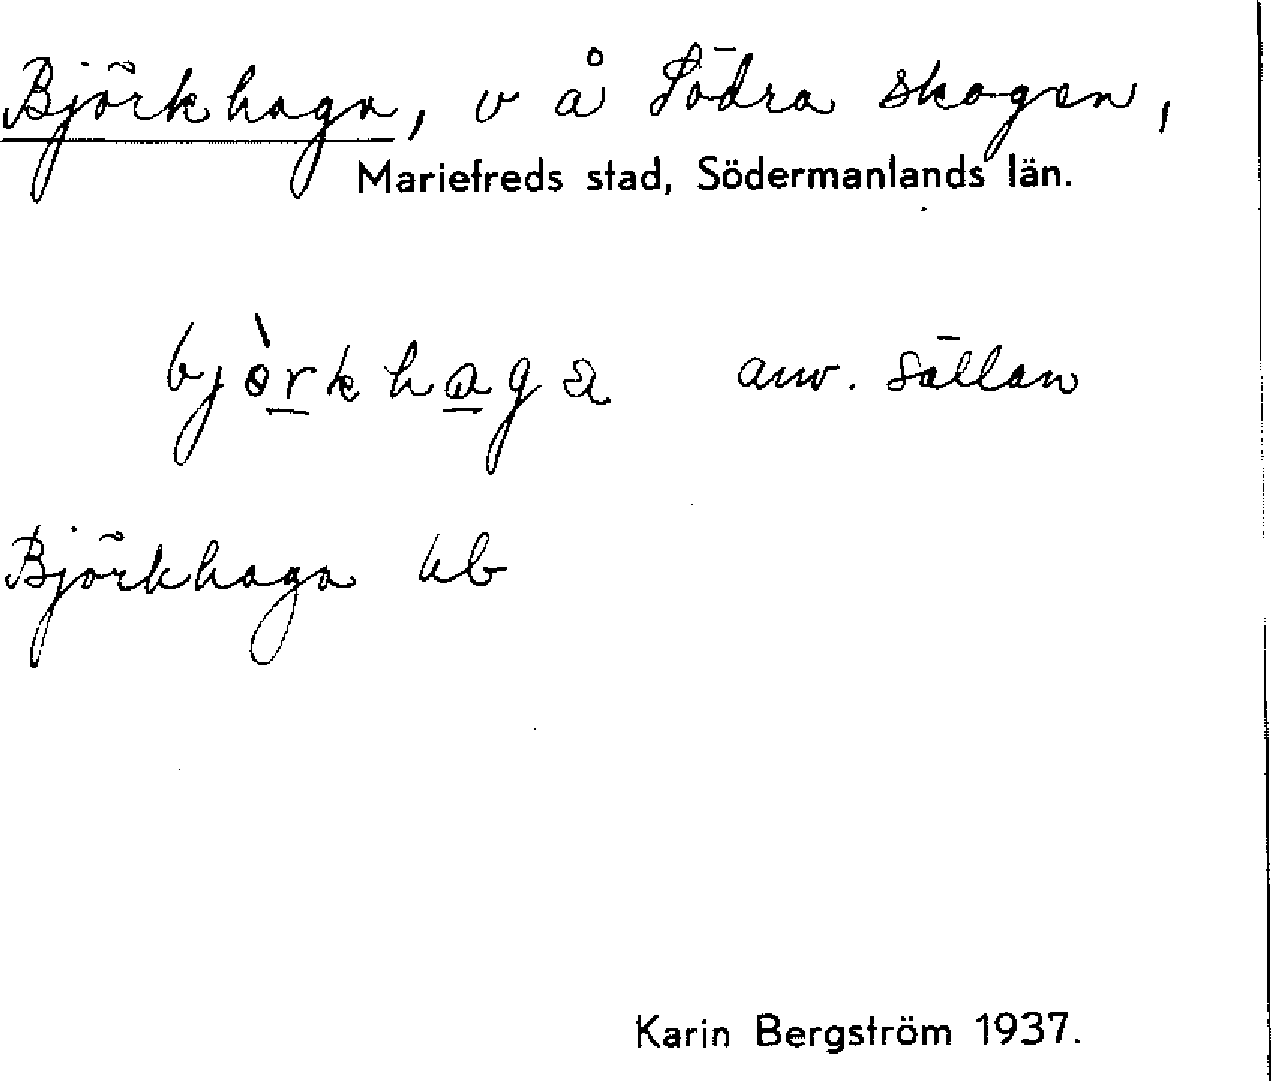 Björkhaga, v å Södra skogen,
Mariefreds stad, Södermanlands län.
bjòrkhaga anv. sällan
Björkhaga kb
Karin Bergström 1937.